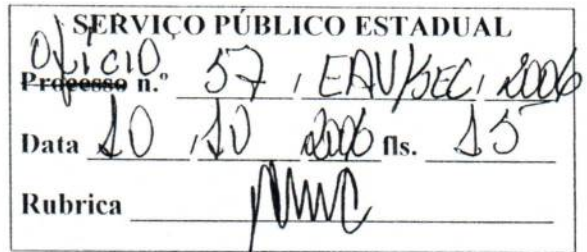 SERVIÇO PÚBLICO ESTADUAL
OFÍCIO
Processo n.º 57 / EAV/SEC / 2006
Data 10 / 10 2006 fls. 15
Rubrica